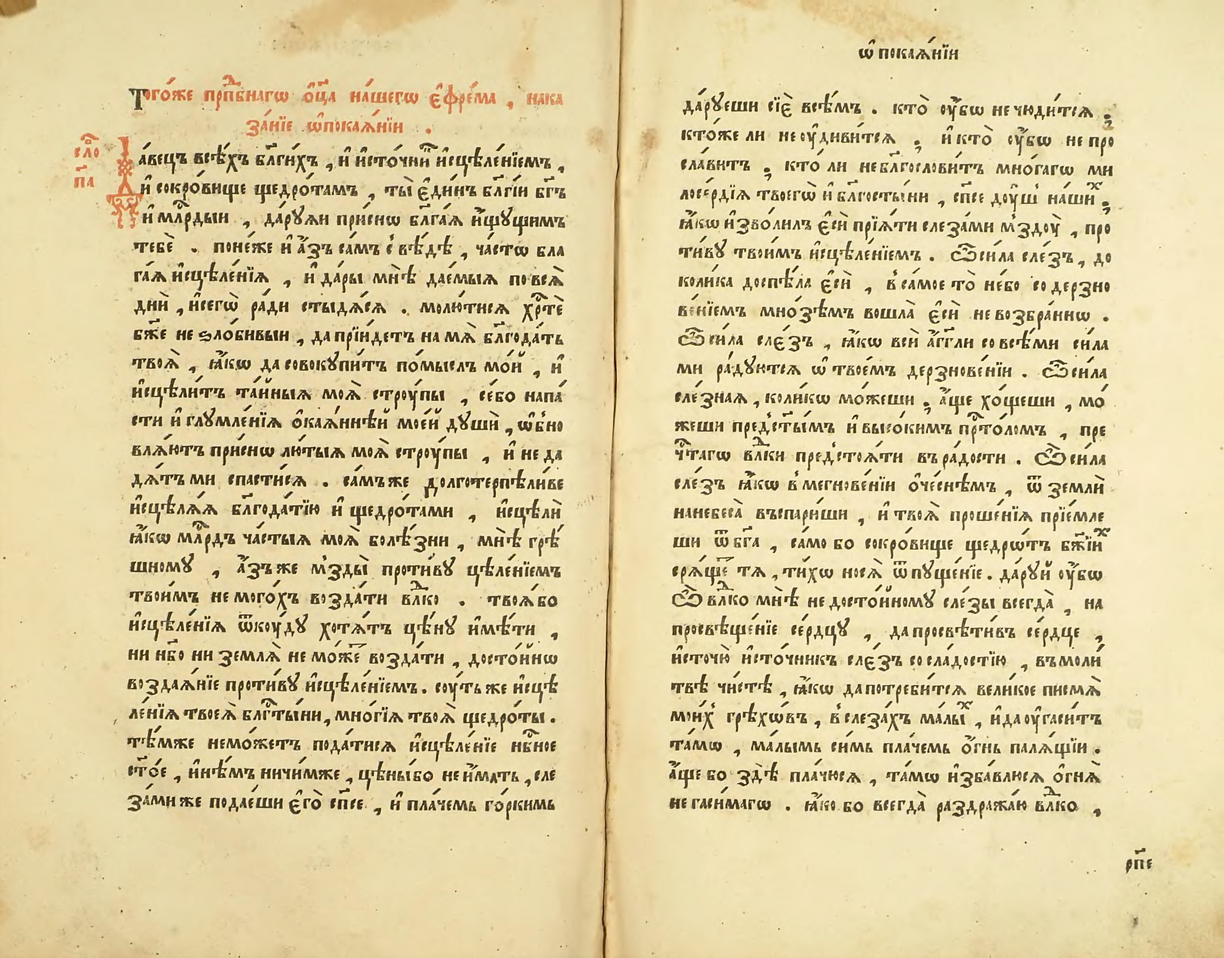 Того́же прⷣпбнагѡ ѻ҆ц҃а нашегѡ є҆фре́ма , нака
за́нїе ѡ҆ покаѧ́нїи .
сло́
п҃а
Да́вецъ всѣ́хъ бл҃ги́хъ , и҆ и҆сто́чниⷦ҇ и҆сцѣле́нїемъ ,
и҆ сокро́вище щедро́тамъ , ты̀ є҆ди́нъ бл҃гі́и бг҃ъ
и҆ млⷭ҇рдыи , да́рꙋѧи при́снѡ бл҃га́ѧ и҆́щꙋщимъ
тебѐ . поне́же и҆ а҆́зъ са́мъ с̾вѣ́дѣ , ча́стѡ бла
га́ѧ и҆сцѣле́нїѧ , и҆ да́ры мнѣ̀ дае́мыѧ по всѧ̀
дни̑ , и҆ сегѡ̀ ра́ди стыдѧ́сѧ . молю́тисѧ хрⷭ҇тѐ
бж҃е не ѕло́бивыи , да прїи́детъ на мѧ̀ бл҃года́ть
твоѧ̀ , ꙗ҆́кѡ да совокꙋпи́тъ по́мыслъ мо́й , и҆
и҆сцѣли́тъ та́йныѧ моѧ̀ стрꙋ́пы , се́бо напа́
сти и҆ глꙋмле́нїѧ ѻ҆каѧ́ннѣй мое́й дꙋшѝ , ѡ҆б̾но
влѧ́ютъ при́снѡ лю́тыѧ моѧ̀ стрꙋ́пы , и҆ не да
дѧ́тъ ми спасти́сѧ . са́мъ же долготерпѣ́ливе
и҆сцѣлѧ́ѧ бл҃года́тїю и҆ щедро́тами , и҆сцѣлѝ
ꙗ҆́кѡ млⷭ҇рдъ ча́стыѧ моѧ̀ болѣ́зни , мнѣ̀ грѣ́
шномꙋ , а҆́зъ же м̾зды̀ проти́вꙋ цѣле́нїемъ
твои́мъ не мого́хъ возда́ти влⷣко . твоѧ́ бо
и҆сцѣле́нїѧ ѿкꙋ́дꙋ хотѧ́тъ цѣ́нꙋ и҆мѣ́ти ,
ни нб҃о ни землѧ̀ не мо́же возда́ти , досто́йнѡ
воздаѧ́нїе проти́вꙋ и҆сцѣле́нїемъ . сꙋ́ть же и҆сцѣ
ле́нїѧ твоеѧ̀ блгⷭ҇ты́ни , мно́гїѧ твоѧ̀ щедро́ты .
тѣ́мже немо́жетъ пода́тисѧ и҆сцѣле́нїе нбⷭ҇ное
ст҃о́е , и҆нѣ́мъ ничи́мже , цѣны́ бо не и҆́мать , сле
за́ми же подае́ши є҆го̀ сп҃се , и҆ пла́чемъ го́ркимъ
ѡ҆ покаѧ́нїи
да́рꙋеши сїѐ всѣ́мъ . кто̀ ᲂу҆́бѡ не чю́дитсѧ ;
кто́же ли не ᲂу҆диви́тсѧ ; и҆ кто̀ ᲂу҆́бѡ не про
сла́витъ ; кто́ ли не бл҃гослови́тъ мно́гагѡ ми
лосе́рдїѧ твоегѡ̀ и҆ бл҃госты́ни , сп҃се дꙋ́шъ на́шиⷯ ;
ꙗ҆́кѡ и҆зво́лилъ є҆сѝ прїѧ́ти слеза́ми м̾здꙋ̀ , про
ти́вꙋ твои́мъ и҆сцѣле́нїемъ . Ѽ си́ла сле́зъ , до
коли́ка доспѣ́ла є҆сѝ , в̾ са́мое то̀ не́бо со дерзно
ве́нїемъ мно́зѣмъ вошла̀ є҆сѝ не возбра́ннѡ .
Ѽ си́ла сле́зъ , ꙗ҆́кѡ всѝ а҆́гг҃ли со всѣ́ми си́ла
ми ра́дꙋютсѧ ѡ҆ твое́мъ дерзнове́нїи . Ѽ си́ла
сле́знаѧ , коли́кѡ мо́жеши ; а҆́ще хо́щеши , мо́
жеши пред̾ст҃ы́мъ и҆ высо́кимъ прⷭ҇то́ломъ , пре
чⷭ҇тагѡ влⷣки предстоѧ́ти въ ра́дости . Ѽ си́ла
сле́зъ ꙗ҆́кѡ в̾ мегнове́нїи ѻ҆че́снѣмъ , ѿ землѝ
на небеса̀ въспари́ши , и҆ твоѧ̀ проше́нїѧ прїе́мле
ши ѿ бг҃а , са́мо бо сокро́вище щедрѡ́тъ бж҃їиⷯ
срѧ́щетъ тѧ , ти́хѡ носѧ̀ ѿпꙋще́нїе . да́рꙋй ᲂу҆́бѡ
Ѽ влⷣко мнѣ̀ недосто́йномꙋ сле́зы всегда̀ , на
просвѣще́нїе се́рдцꙋ , да просвѣти́въ се́рдце ,
и҆сточю̀ и҆сто́чникъ сле́зъ со сла́достїю , въ моли́
твѣ чи́стѣ , ꙗ҆́кѡ да потреби́тсѧ вели́кое писмѧ̀
мои́хъ грѣхо́въ , в̾ слеза́хъ ма́лыⷯ , и҆ да ᲂу҆гаси́тъ
та́мѡ , ма́лымъ си́мъ пла́чемъ ѻ҆́гнь палѧ́щїи .
а҆́ще бо здѣ̀ пла́чюсѧ , та́мѡ и҆зба́влюсѧ ѻ҆гнѧ̀
не гаси́магѡ . ꙗ҆́ко бо всегда̀ раздража́ю влⷣко ,
рп҃е